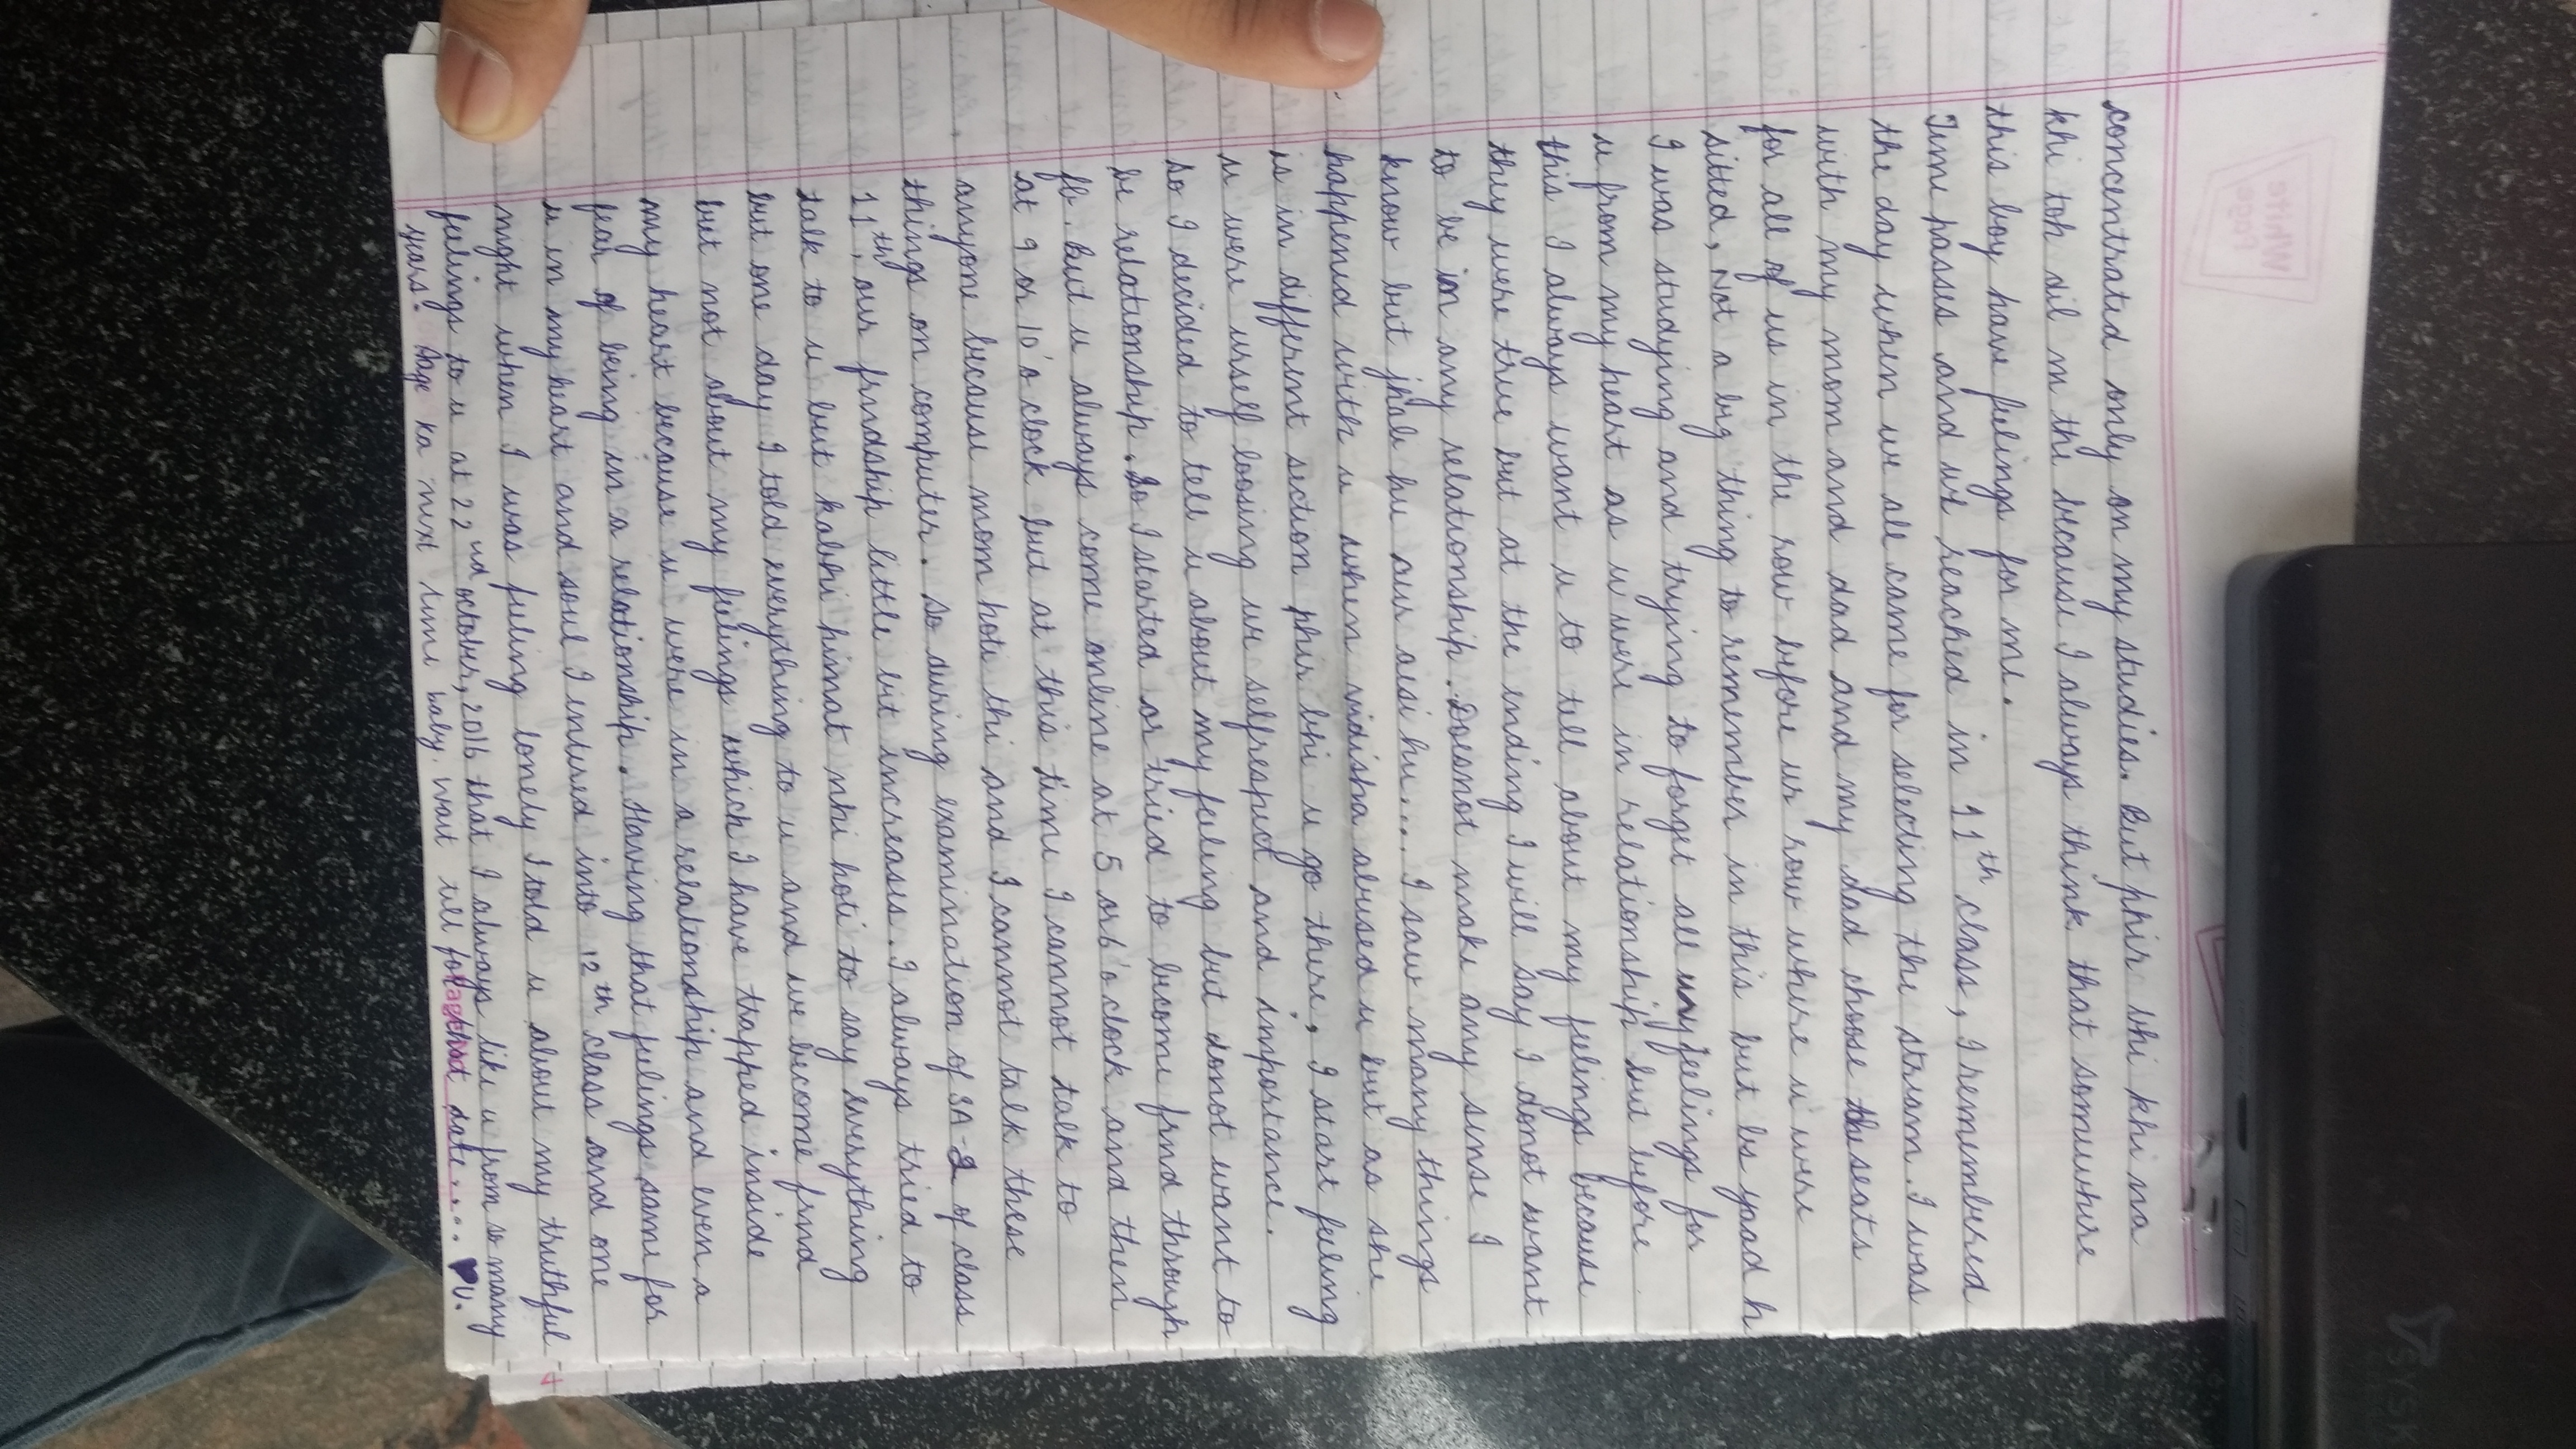 concentrated only on my studies. But phir bhi khi na
khi toh dil m thi because I always think that somewhere
this boy have feelings for me.
Time passes and we reached in 11th class, I remembered
the day when we all came for selecting the stream. I was
with my mom and dad and my dad choose the seats
for all of us in the row before ur row where u were
sitted, Not a big thing to remember in this but bs yaad h
I was studying and trying to forget all my feelings for
u from my heart as u were in relationship but before
this I always want u to tell about my feelings because
they were true but at the ending I will say I donot want
to be in any relationship. Doesnot make any sense I
know but jhali hu aur aisi hu.... I saw many things
happened with u when vidisha abused u but as she
is in different section phir bhi u go there, I start feeling
u were urself loosing ur selfrespect and importance.
So I decided to tell u about my feeling but donot want to
be relationship. So I started or tried to become frnd through
fb. But u always come online at 5 or 6'o clock and then
at 9 or 10'o clock but at this time I cannot talk to
anyone because mom hoti thi and I cannot talk these
things on computer. So during examination of SA-2 of class
11th, our frndship little bit increases. I always tried to
talk to u but kabhi himat nhi hoti to say everything
but one day I told everything to u and we become frnd
but not about my feelings which I have trapped inside
my heart because u were in a relationship and even a
fear of being in a relationship. Having that feelings same for
u in my heart and soul I entered into 12th class and one
night when I was feeling lonely I told u about my truthful
feelings to u at 22nd october, 2016 that I always like u from so many
years. Aage ka next time baby. wait till date.... ♥ U.
White
Page
ASUS